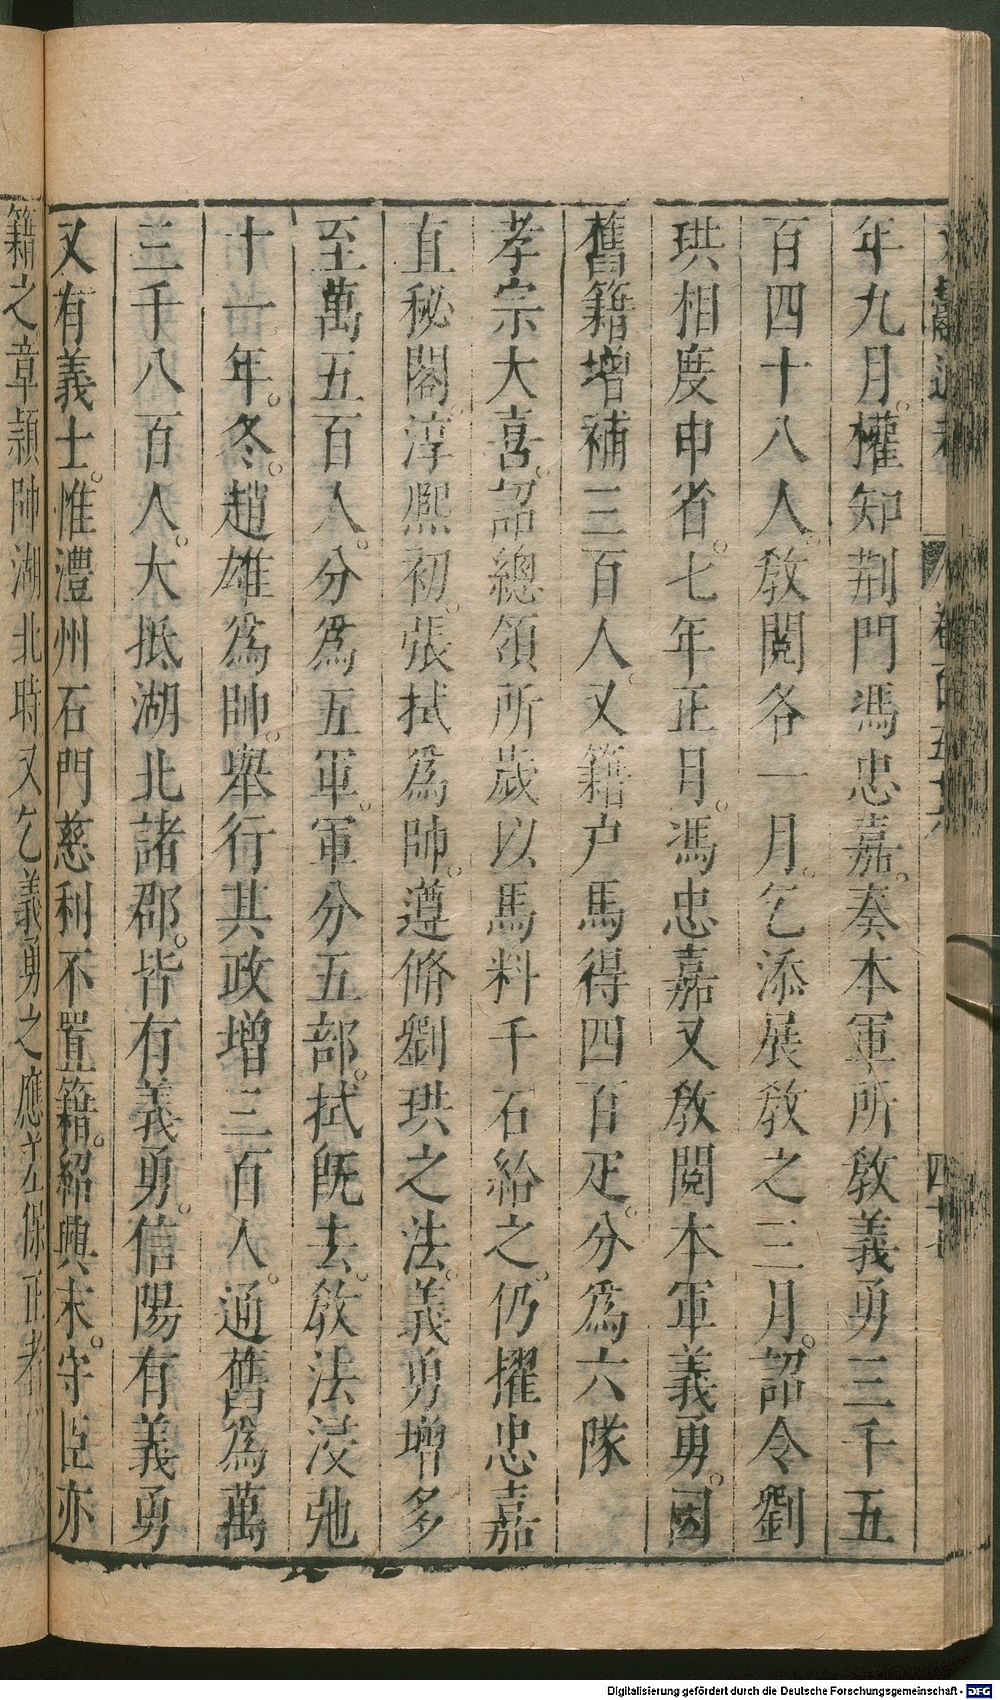 文獻通考 卷百五十六 四十
年九月權知荆門馮忠嘉奏本軍所敎義勇三千五
百四十八人敎閱各一月乞添展敎之三月詔令劉
珙相度申省七年正月馮忠嘉又敎閱本軍義勇因
舊籍增補三百人又籍户馬得四百疋分爲六隊
孝宗大喜詔總領所歲以馬料千石給之仍擢忠嘉
直秘閣淳熙初張栻爲帥遵脩劉珙之法義勇增多
至萬五百人分爲五軍軍分五部栻既去敎法浸弛
十一年冬趙雄爲帥舉行其政增三百人通舊爲萬
三千八百人大抵湖北諸郡皆有義勇信陽有義勇
又有義士惟澧州石門慈利不置籍紹興末守臣亦
籍之章頴帥湖北時又乞義勇之應差保正者
Digitalisierung gefördert durch die Deutsche Forschungsgemeinschaft - DFG